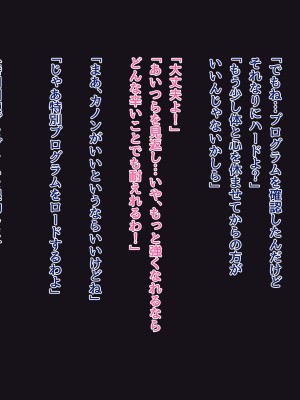 『でもね…プログラムを確認したんだけど
それなりにハードよ？』
『もう少し体と心を休ませてからの方が
いいんじゃないかしら』
『大丈夫よー』
『あいつらを見返し…いや、もっと強くなれるなら
どんな辛いことでも耐えれるわー』
『まあ、カノンがいいというならいいけどね』
『じゃあ特別プログラムをロードするわよ』